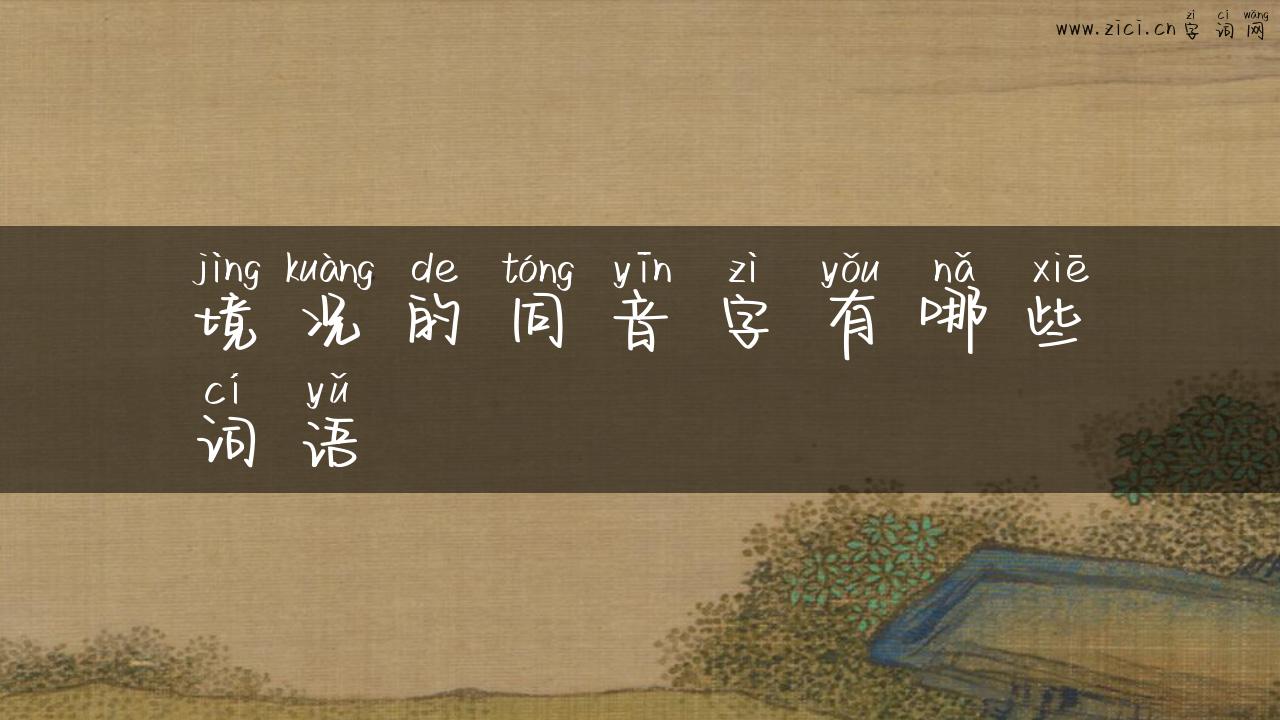 zì cí wǎng
www.zici.cn 字 词 网
jìng kuàng de tóng yīn zì yǒu nǎ xiē
境 况 的 同 音 字 有 哪 些
cí yǔ
词 语